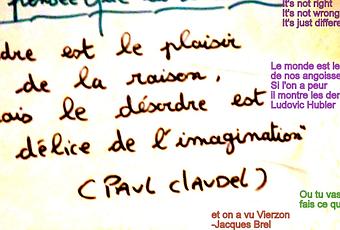 pensée que
It's not right
It's not wrong
It's just differe
dre est le plaisir
de la raison,
ais le désordre est
délice de l'imagination"
(PAUL CLAUDEL)
Le monde est le
de nos angoisse
Si l'on a peur
il montre les der
Ludovic Hubler
Ou tu vas
fais ce qu
et on a vu Vierzon
-Jacques Brel